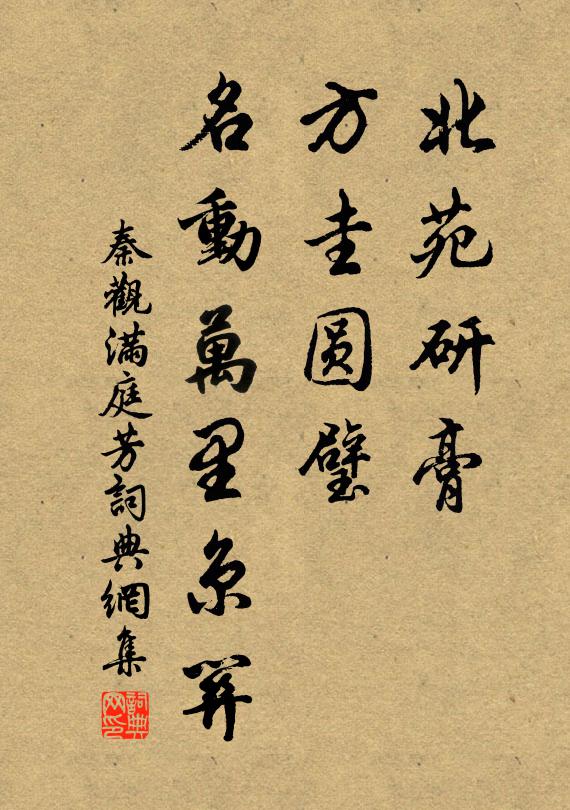 北苑研膏
方圭圆璧
名動萬里京關
秦觀滿庭芳詞典網集
詞典网印